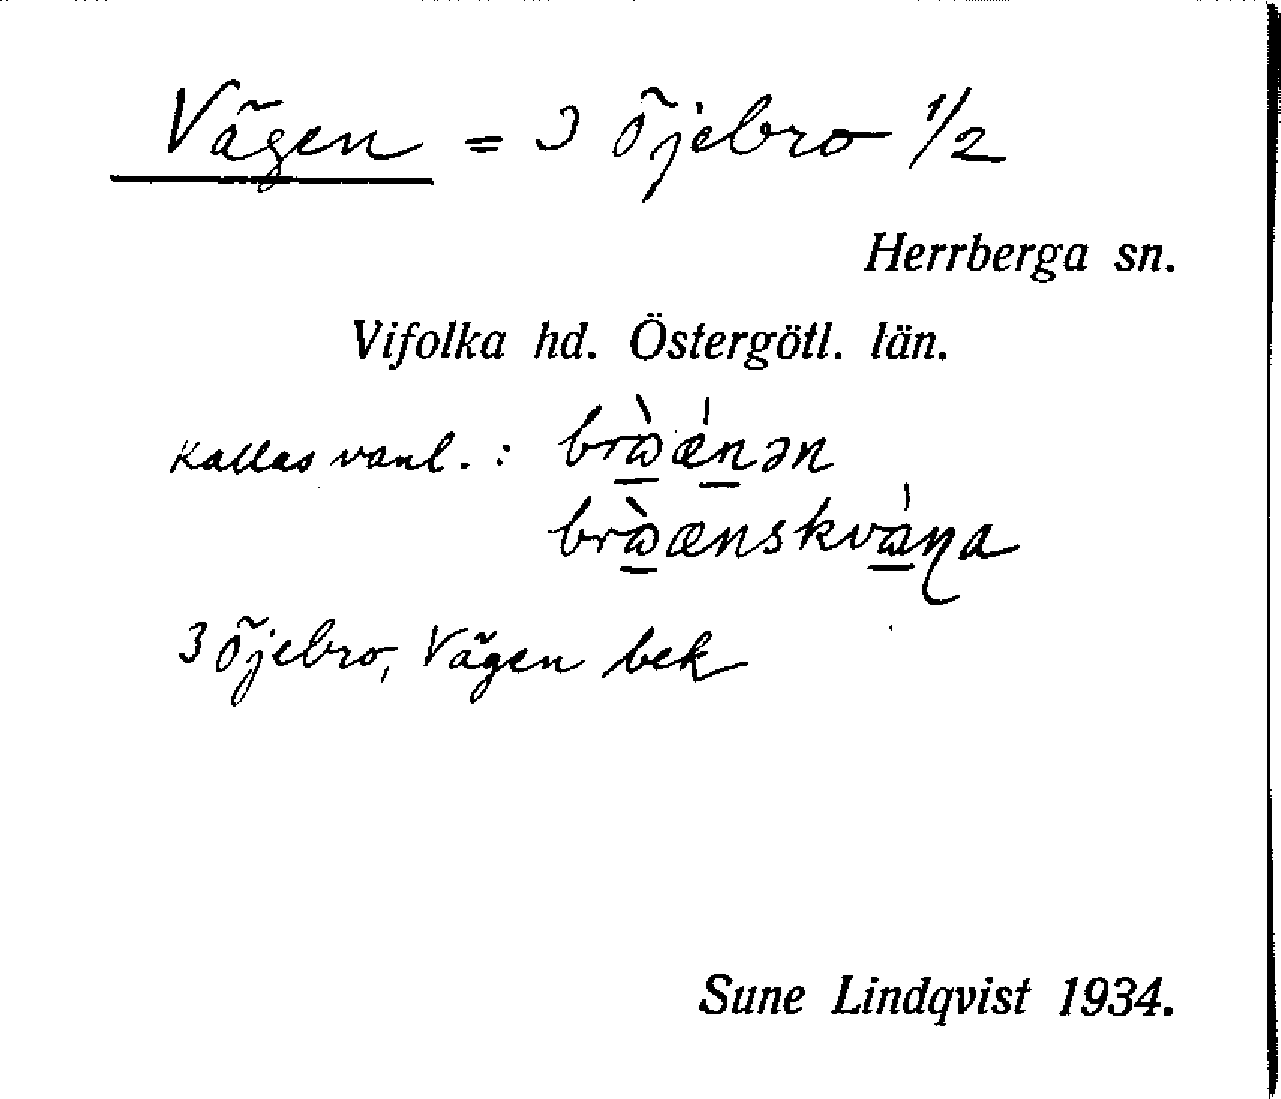 Vägen = 3 Öjebro 1/2
Herrberga sn.
Vifolka hd. Östergötl. län.
Kallas vanl. : brɷ̀ǽnən
brɷ̀ænskvɷ́ɳa
3 Öjebro, Vägen bek
Sune Lindqvist 1934.